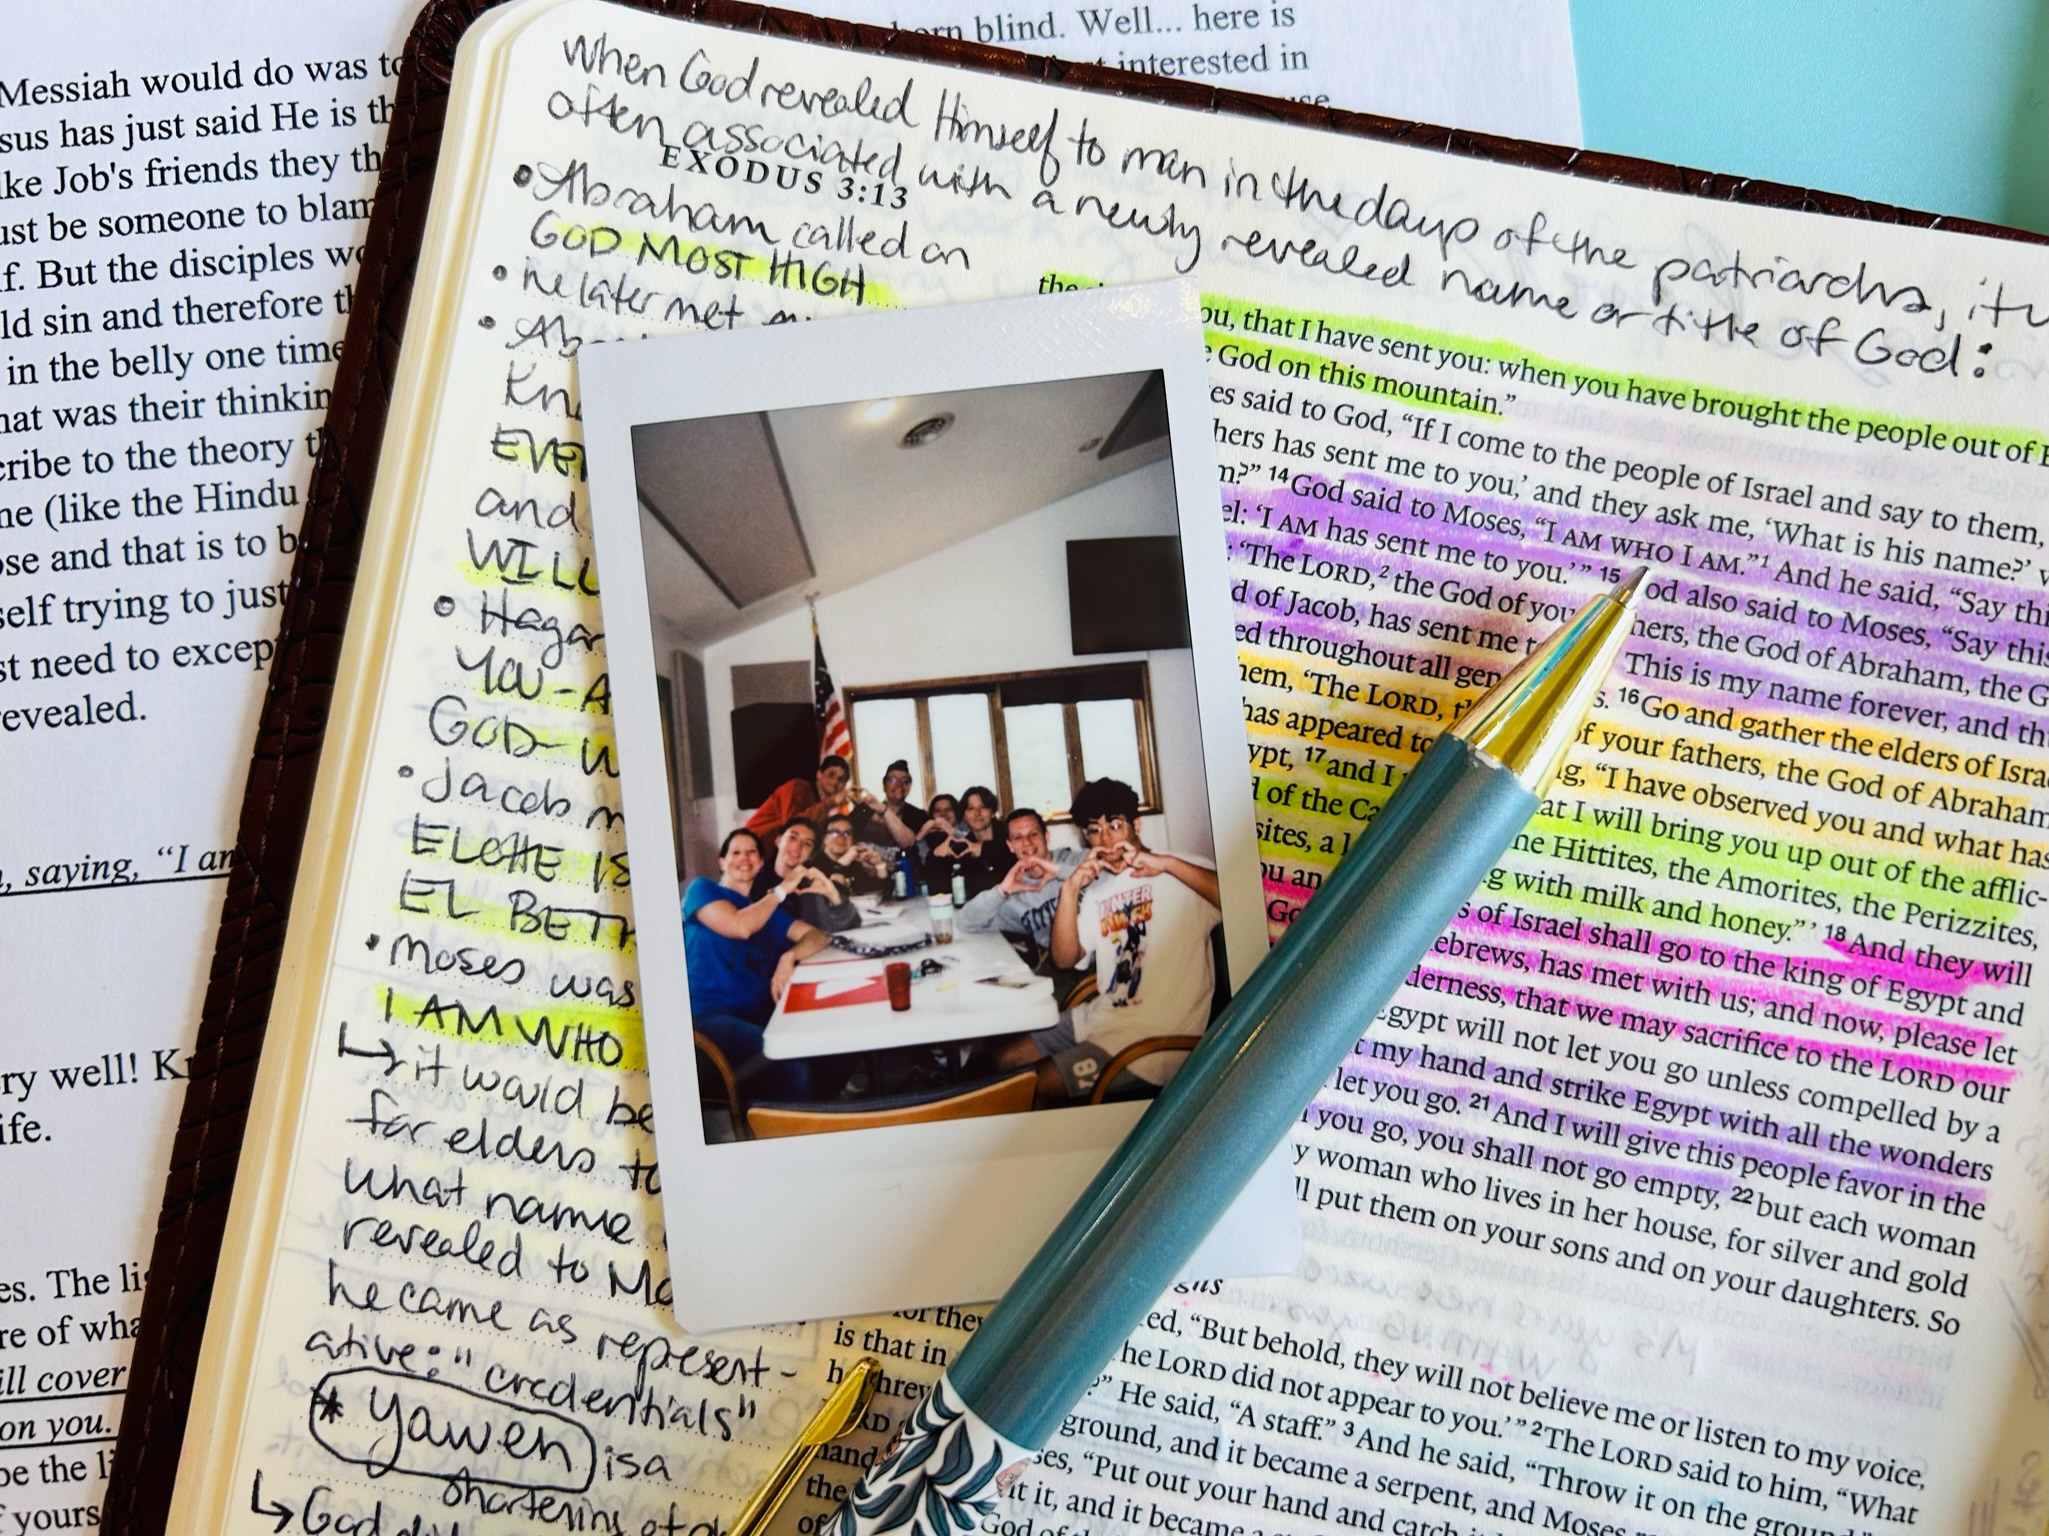 Messiah would do was to
sus has just said He is th
ke Job's friends they th
ust be someone to blam
f. But the disciples wo
ld sin and therefore th
in the belly one time
hat was their thinkin
cribe to the theory th
ne (like the Hindu
ose and that is to b
self trying to just
st need to excep
revealed.
, saying, “I am
ry well! Kn
ife.
es. The li
re of wha
ill cover
on you.
be the li
f yours
orn blind. Well... here is
t interested in
When God revealed Himself to man in the days of the patriarchs, it w
often associated with a newly revealed name or title of God:
EXODUS 3:13
• Abraham called on
GOD MOST HIGH
• he later met
• Ab
Kn
EVER
and
WILL
• Hagar
YOU-A
GOD-W
• Jacob m
ELOHE IS
EL BETH
• Moses was
I AM WHO
↳ it would be
for elders to
what name
revealed to Mo
he came as represent-
ative: "credentials"
* Yaweh is a
shortening of
↳ God
ou, that I have sent you: when you have brought the people out of E
e God on this mountain.”
es said to God, “If I come to the people of Israel and say to them,
hers has sent me to you,’ and they ask me, ‘What is his name?’ w
m?” 14 God said to Moses, “I AM WHO I AM.”1 And he said, “Say thi
el: ‘I AM has sent me to you.’” 15 God also said to Moses, “Say this
: ‘The LORD,2 the God of you hers, the God of Abraham, the G
d of Jacob, has sent me t This is my name forever, and th
ed throughout all gen s. 16 Go and gather the elders of Isra
hem, ‘The LORD, t of your fathers, the God of Abraham
has appeared to g, “I have observed you and what has
ypt, 17 and I at I will bring you up out of the afflic-
d of the Ca he Hittites, the Amorites, the Perizzites,
sites, a l g with milk and honey.”’ 18 And they will
ou an s of Israel shall go to the king of Egypt and
Go ebrews, has met with us; and now, please let
derness, that we may sacrifice to the LORD our
Egypt will not let you go unless compelled by a
t my hand and strike Egypt with all the wonders
let you go. 21 And I will give this people favor in the
you go, you shall not go empty, 22 but each woman
y woman who lives in her house, for silver and gold
ll put them on your sons and on your daughters. So
gns
ed, “But behold, they will not believe me or listen to my voice,
he LORD did not appear to you.’” 2 The LORD said to him, “What
?” He said, “A staff.” 3 And he said, “Throw it on the ground.”
ground, and it became a serpent, and Moses
ses, “Put out your hand and catch it
it, and it became a
God of th
for they
is that in
threw
hand
the
of
78